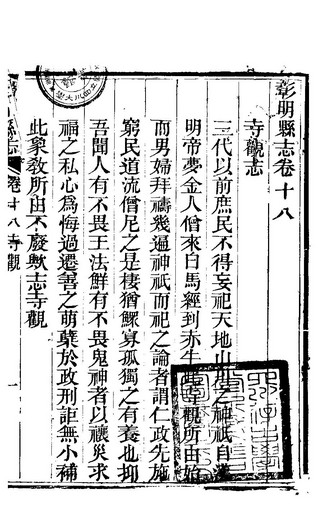 彰明縣志卷十八
寺觀志
三代以前庶民不得妄祀天地山川之神祇自漢
明帝夢金人僧來白馬經到赤牛此寺觀所由始
而男婦拜禱幾遍神祇而祀之論者謂仁政先施
窮民道流僧尼之是棲猶鰥寡孤獨之有養也抑
吾聞人有不畏王法鮮有不畏鬼神者以禳災求
福之私心爲悔過遷善之萌蘖於政刑詎無小補
此象敎所由不廢歟志寺觀
卷十八寺觀
一